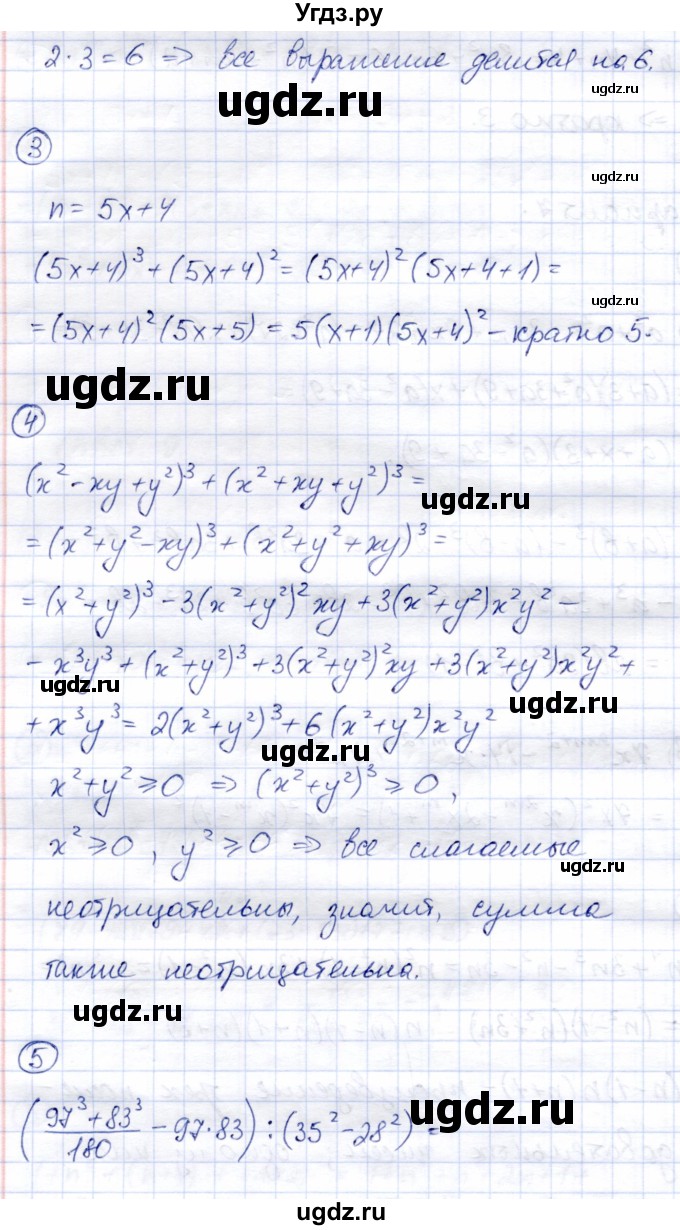 Угдз.ру
2·3=6 ⇒ все выражение делится на 6.
ugdz.ru
ugdz.ru
③
ugdz.ru
n = 5x+4
(5x+4)³+(5x+4)² = (5x+4)²(5x+4+1) =
ugdz.ru
= (5x+4)²(5x+5) = 5(x+1)(5x+4)² – кратно 5.
ugdz.ru
ugdz.ru
④
(x²-xy+y²)³+(x²+xy+y²)³ =
ugdz.ru
= (x²+y²-xy)³+(x²+y²+xy)³ =
= (x²+y²)³-3(x²+y²)²xy+3(x²+y²)x²y² -
- x³y³+(x²+y²)³+3(x²+y²)²xy+3(x²+y²)x²y²+
ugdz.ru
ugdz.ru
+x³y³ = 2(x²+y²)³+6(x²+y²)x²y²
ugdz.ru
x²+y² ⩾ 0 ⇒ (x²+y²)³ ⩾ 0,
x² ⩾ 0, y² ⩾ 0 ⇒ все слагаемые
ugdz.ru
неотрицательны, значит, сумма
также неотрицательна.
ugdz.ru
⑤
((97³+83³)/180 - 97·83) : (35²-28²) =
ugdz.ru
ugdz.ru